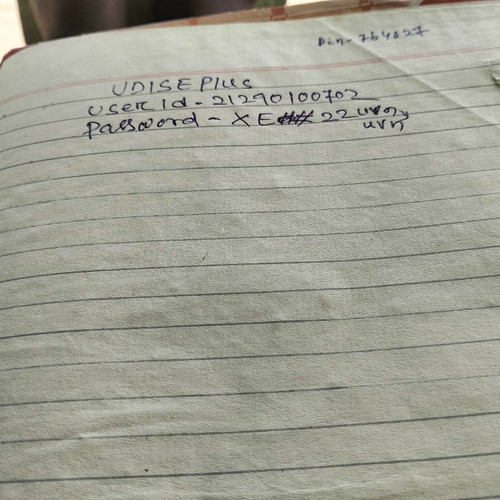 Pin-
UDISE Plus
User Id - 21290100702
Password - XE## 22
uvn